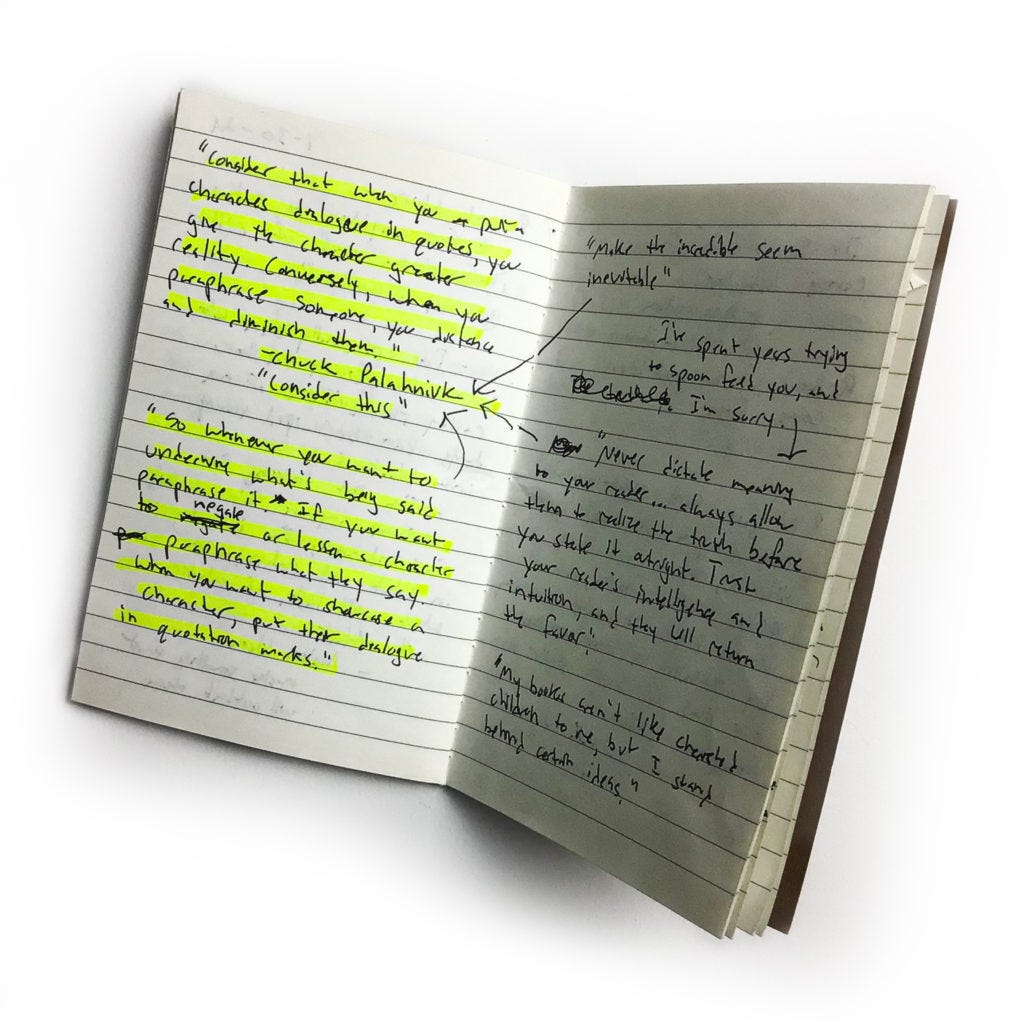 "Consider that when you put a
characters dialogue in quotes, you
give the character greater
reality. Conversely, when you
paraphrase someone, you distance
and diminish them."
-Chuck Palahniuk
"Consider this"
"So whenever you want to
undermine what's being said
paraphrase it. If you want
to negate or lessen a character
paraphrase what they say.
When you want to showcase a
character, put their dialogue
in quotation marks."
"Make the incredible seem
inevitable"
I've spent years trying
to spoon feed you, and
I'm sorry.
"Never dictate meaning
to your reader... always allow
them to realize the truth before
you state it outright. Trust
your reader's intelligence and
intuition, and they will return
the favor."
"My books aren't like cherished
children to me, but I stand
behind certain ideas."